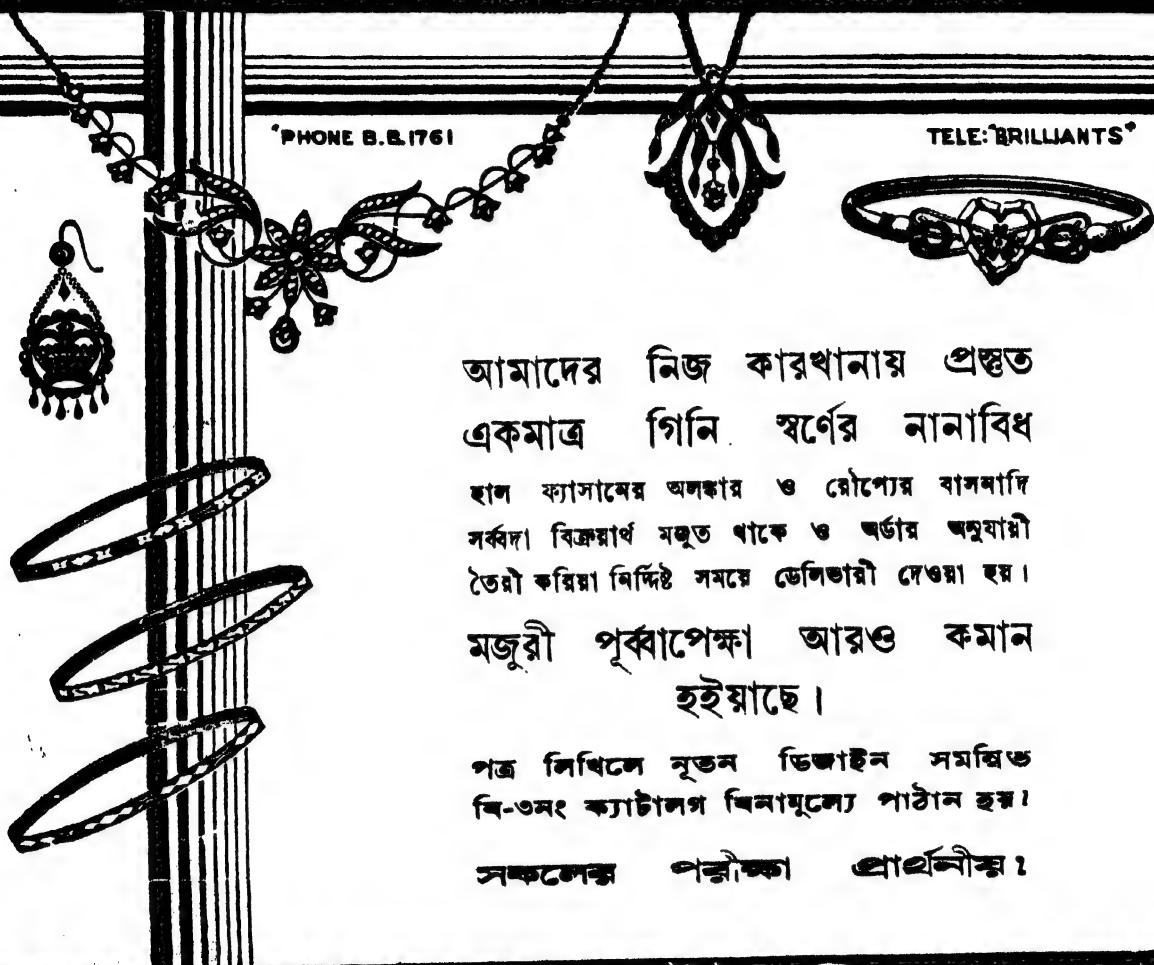 'PHONE B.B. 1761
TELE: "BRILLIANTS"
আমাদের নিজ কারখানায় প্রস্তুত
একমাত্র গিনি স্বর্ণের নানাবিধ
হাল ফ্যাসানের অলঙ্কার ও রৌপ্যের বাসনাদি
সর্ব্বদা বিক্রয়ার্থ মজুত থাকে ও অর্ডার অনুযায়ী
তৈরী করিয়া নির্দ্দিষ্ট সময়ে ডেলিভারী দেওয়া হয়।
মজুরী পূর্ব্বাপেক্ষা আরও কমান
হইয়াছে।
পত্র লিখিলে নূতন ডিজাইন সমন্বিত
বি-৩নং ক্যাটালগ বিনামূল্যে পাঠান হয়।
সকলের পরীক্ষা প্রার্থনীয়।